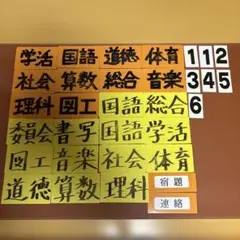 学活 国語 道徳 体育 1 1 2
社会 算数 総合 音楽 3 4 5
理科 図工 国語 総合 6
委員会 書写 国語 学活
図工 音楽 社会 体育
道徳 算数 理科 宿題
連絡